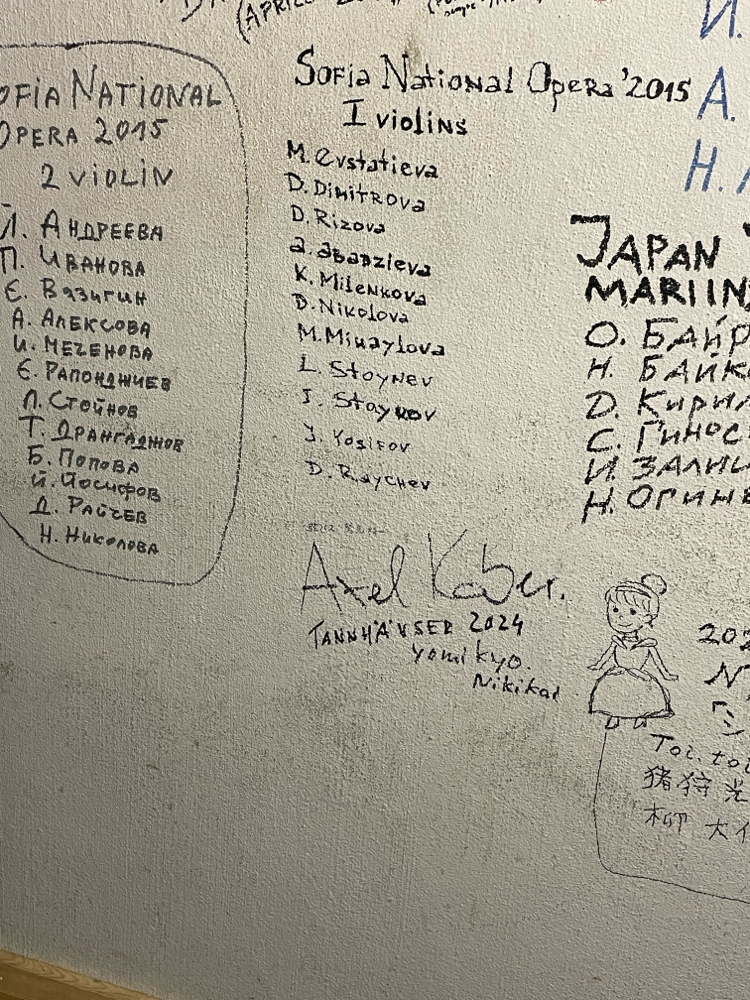 (APRILE
OFIA NATIONAL
OPERA 2015
2 VIOLIN
Л. АНДРЕЕВА
П. ИВАНОВА
Є. ВЯЗИГИН
А. АЛЕКСОВА
И. МЕЧЕНОВА
Є. РАПОНДЖИЕВ
Л. СТОЙНОВ
Т. ДРАНГАДЖОВ
Б. ПОПОВА
Й. ЙОСИФОВ
Д. РАЙЧЕВ
Н. НИКОЛОВА
Sofia National Opera '2015
I violins
M. Evstatieva
D. Dimitrova
D. Rizova
K. Milenkova
D. Nikolova
M. Mihaylova
L. Stoynev
I. Stoykov
J. Yosifov
D. Raychev
Axel Kober.
TANNHÄUSER 2024
yomikyo.
Nikikai
И.
А.
Н.
JAPAN
MARIIN
О. БАЙР
Н. БАЙК
Д. КИРИЛ
С. ГИНОС
И. ЗАЛИ
Н. ОГИНЕ
202
Toi. toi
猪狩 光
柳 大